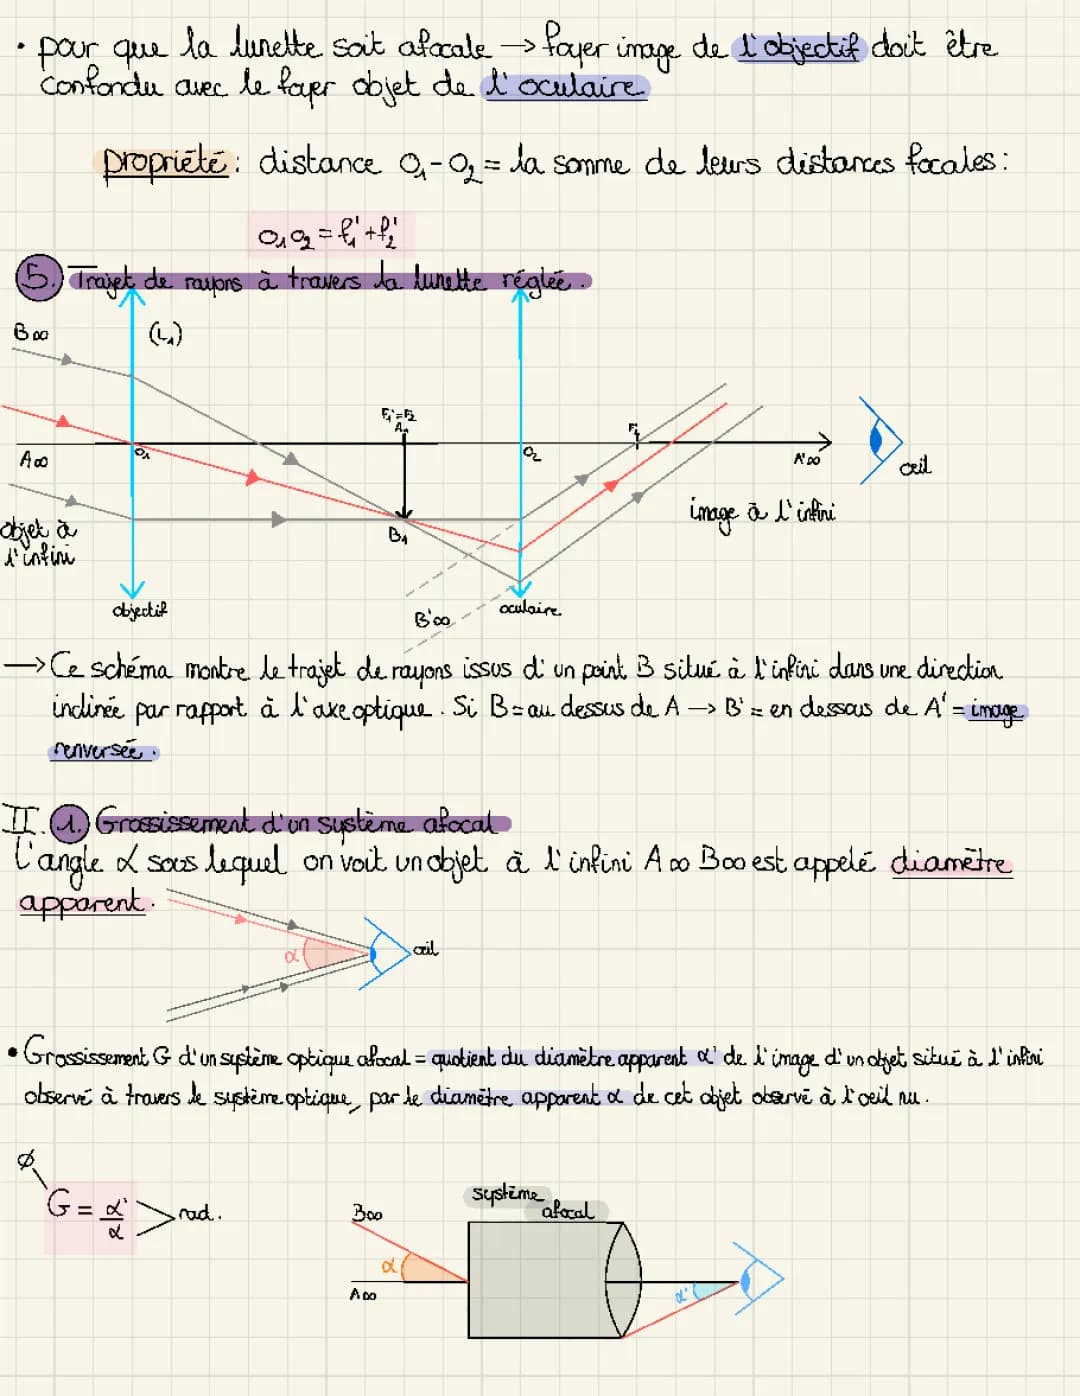 • pour que la lunette soit afocale → foyer image de l'objectif doit être
confondu avec le foyer objet de l'oculaire
propriété : distance O₁-O₂ = la somme de leurs distances focales :
O₁O₂ = f₁' + f₂'
5. Trajet de rayons à travers la lunette réglée.
B∞
(L₁)
F₁'=F₂
A₁
O₁
O₂
A∞
A'∞
œil
objet à
l'infini
B₁
image à l'infini
objectif
B'∞
oculaire
→ Ce schéma montre le trajet de rayons issus d'un point B situé à l'infini dans une direction
inclinée par rapport à l'axe optique. Si B = au dessus de A → B' = en dessous de A' = image
renversée.
II. 1. Grossissement d'un système afocal
L'angle α sous lequel on voit un objet à l'infini A∞ B∞ est appelé diamètre
apparent.
α
œil
• Grossissement G d'un système optique afocal = quotient du diamètre apparent α' de l'image d'un objet situé à l'infini
observé à travers le système optique, par le diamètre apparent α de cet objet observé à l'oeil nu.
Ø
G = α'/α > rad.
système
afocal
B∞
α
A∞
α'